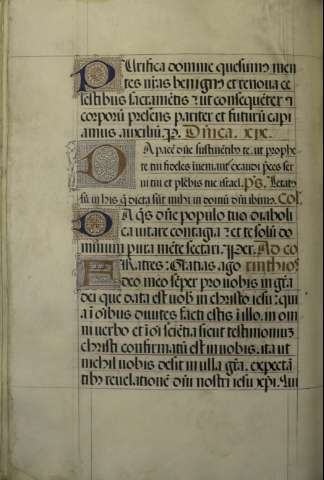 Purifica domine quesumus men
tes nras benignus et renova ce
lestibus sacrametis : ut consequeter et
corporu presens pariter et futuru capi
amus auxiliu. p. Dnica. xix.
Da pace dne sustinetibs te. ut prophe
te tui fideles inveniat. exaudi pces ser
ui tui et plebis tue israel. ps. Letatus
su in his q dicta sut mihi in domu dni ibim. Col.
Da qs dne populo tuo diaboli
ca vitare contagia : et te solu do
minum pura mete sectari. per. Ad co
Fratres : Gratias ago rinthios
deo meo semper pro vobis in gra
dei que data est vob in christo iesu : qui
a i oibus diuites facti estis i illo. in om
ni verbo et i oi scientia sicut testimonium
christi confirmatu est in vobis. ita ut
nichil vobis desit in ulla gra. expecta
tibs reuelatione dni nostri iesu xpi.